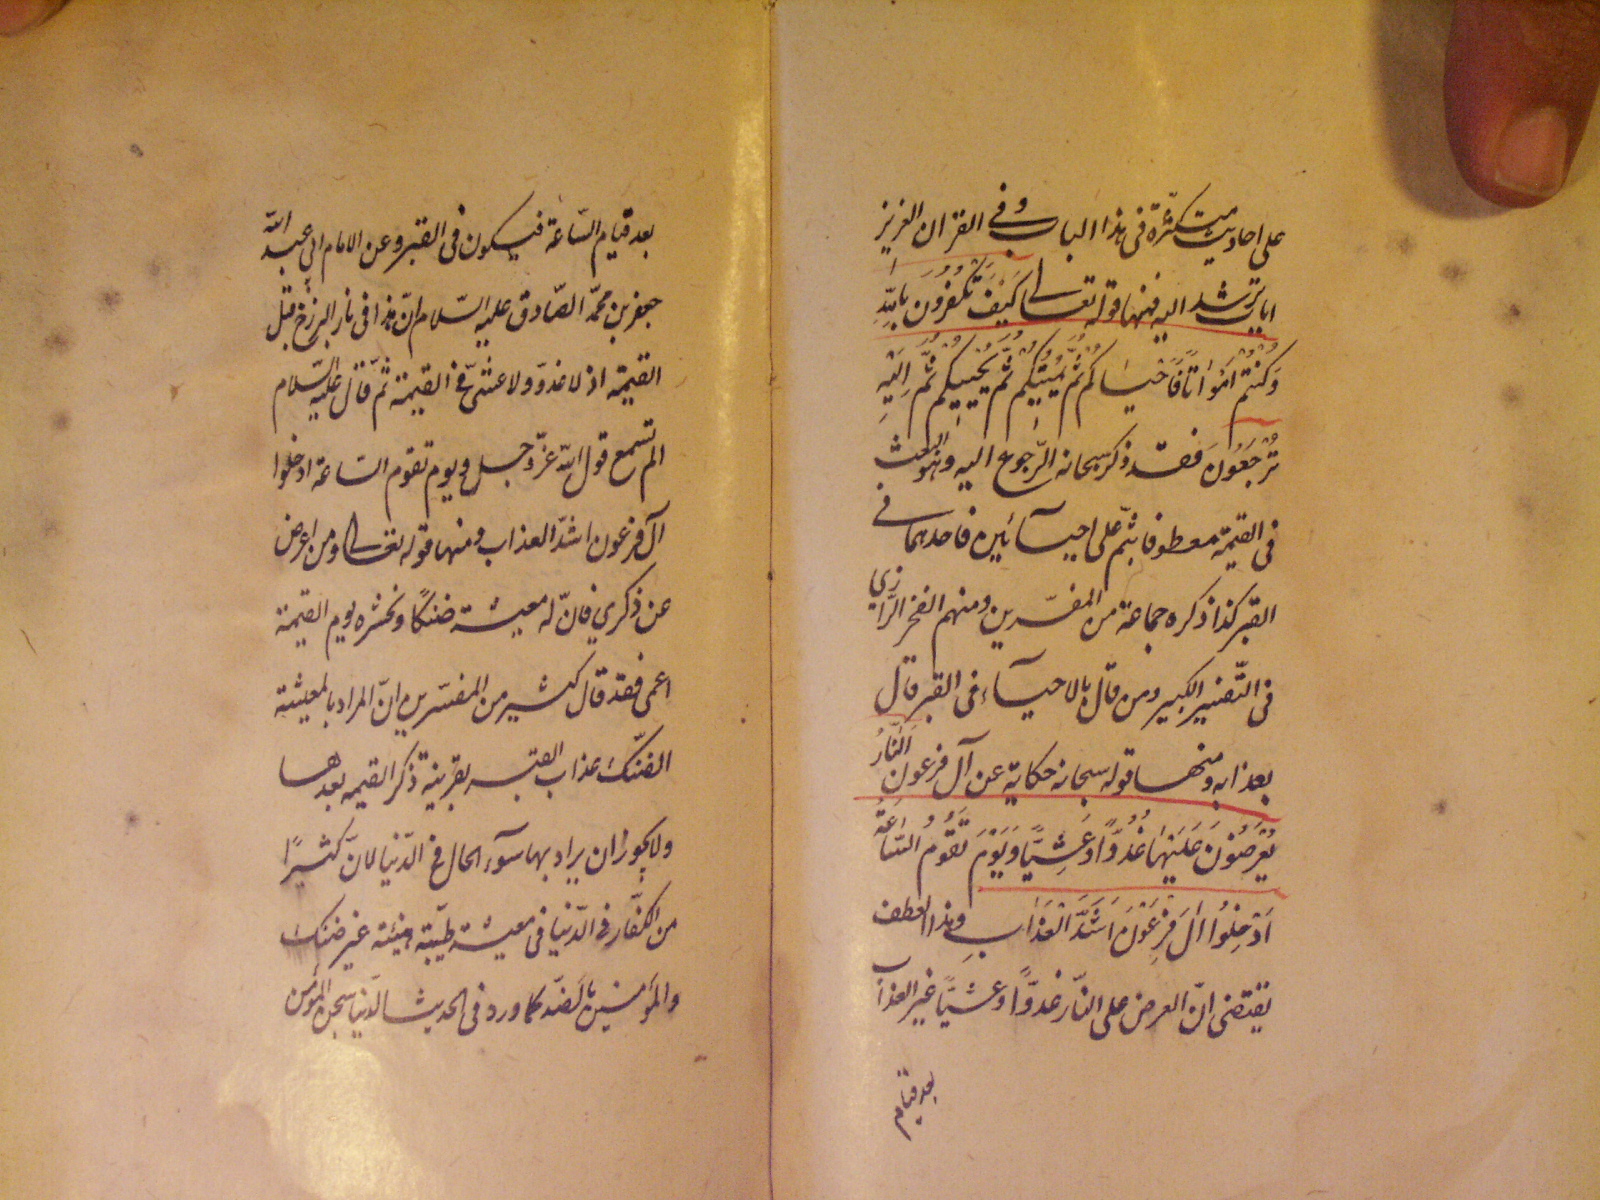 على احاديث متكثرة فى هذا الباب وفي القران العزيز
ايات ترشد اليه فمنها قوله تعالى كَيْفَ تَكْفُرُونَ بِاللّهِ
وَكُنْتُمْ اَمْوَاتًا فَاَحْيَاكُمْ ثُمَّ يُمِيتُكُمْ ثُمَّ يُحْيِيكُمْ ثُمَّ اِلَيْهِ
تُرْجَعُونَ فقد ذكر سبحانه الرّجوع اليه وهو البعث
فى القيمة معطوفا بثمّ على احيائين فاحدهما في
القبر كذا ذكره جماعة من المفسّرين ومنهم الفخر الرّازي
فى التّفسير الكبير ومن قال بالاحيآء فى القبر قال
بعذابه ومنها قوله سبحانه حكاية عن آل فرعون اَلنَّارُ
يُعْرَضُونَ عَلَيْهَا غُدُوًّا وَعَشِيًّا وَيَوْمَ تَقُومُ السَّاعَةُ
اَدْخِلُوا الَ فِرْعَوْنَ اَشَدَّ الْعَذَابِ وهذا العطف
يقتضى انّ العرض على النّار غدوًّا وعشيًّا غير العذاب
بعد قيام
بعد قيام السّاعة فيكون فى القبر وعن الامام ابي عبد اللّه
جعفر بن محمّد الصّادق عليه السّلام انّ هذا فى نار البرزخ قبل
القيمة اذ لا غدوّ ولا عشىّ في القيمة ثمّ قال عليه السّلام
الم تسمع قول اللّه عزّ وجل ويوم تقوم السّاعة ادخلوا
آل فرعون اشدّ العذاب ومنها قوله تعالى ومن اعرض
عن ذكري فانّ له معيشة ضنكًا ونحشره يوم القيمة
اعمى فقد قال كثير من المفسّرين انّ المراد بالمعيشة
الضنك عذاب القبر بقرينة ذكر القيمه بعدها
ولا يجوز ان يراد بها سوء الحال في الدّنيا لانّ كثيرًا
من الكفّار فى الدّنيا فى معيشة طيّبة هنيئة غير ضنك
والمؤمنين بالضدّ كما ورد فى الحديث الدّنيا سجن المؤمن